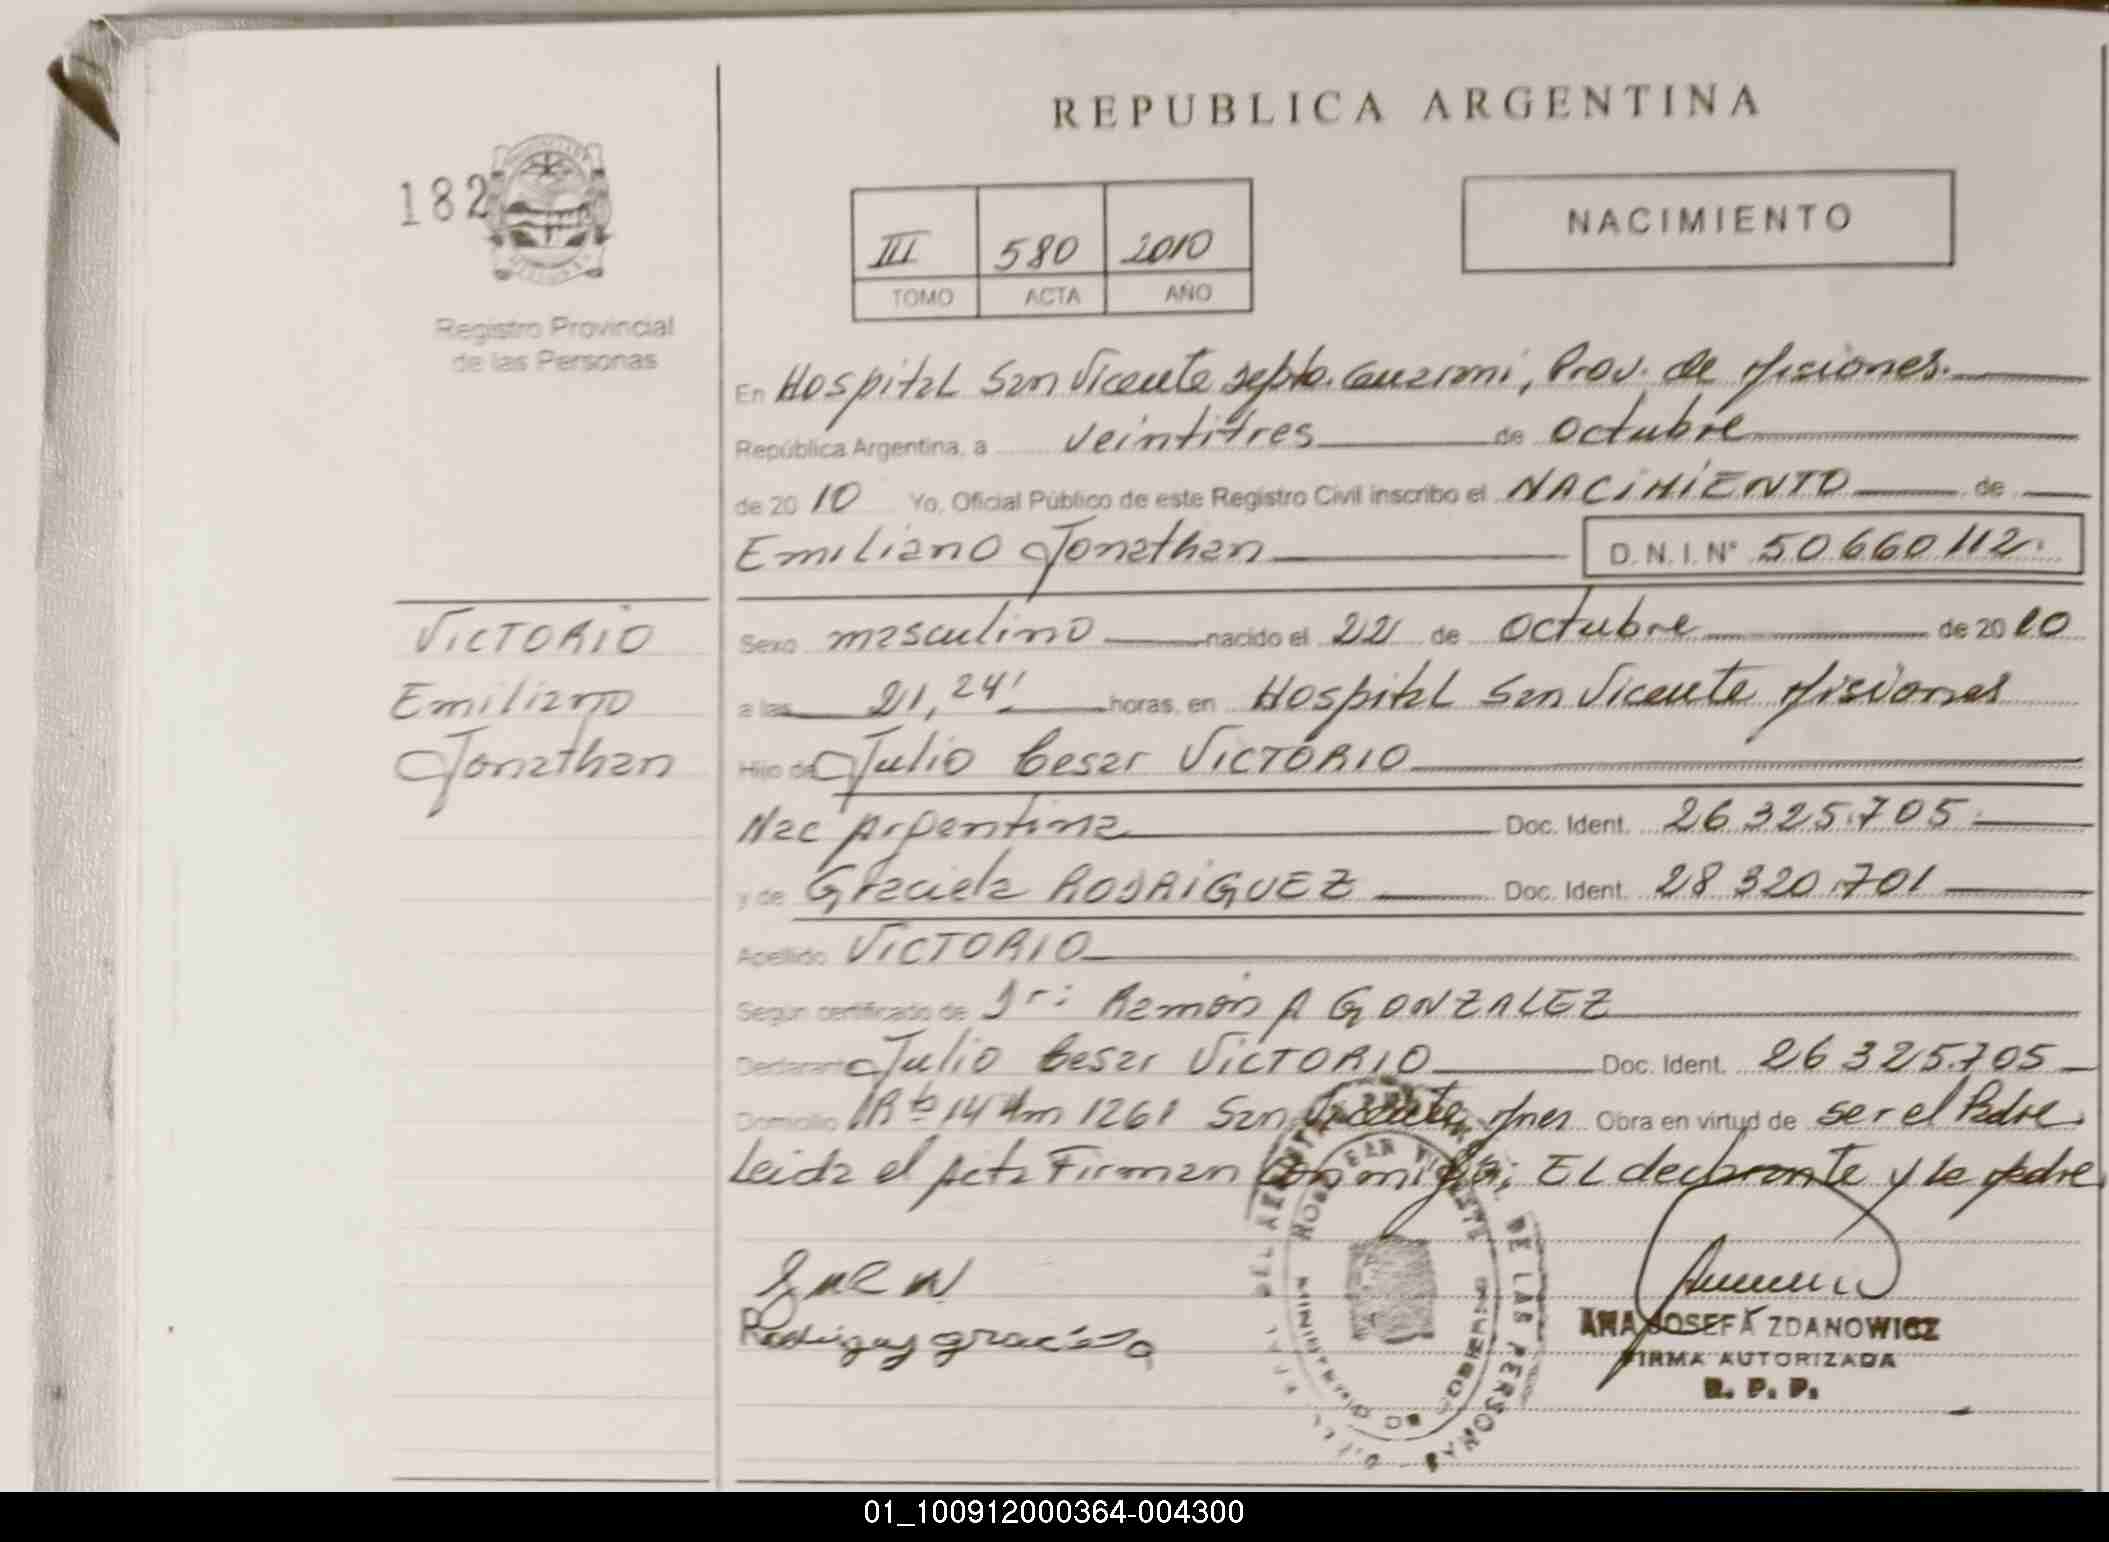 REPUBLICA ARGENTINA
182
NACIMIENTO
III 580 2010
TOMO ACTA AÑO
Registro Provincial
de las Personas
En Hospital San Vicente Depto. Guarani, Prov. de Misiones.
República Argentina, a veintitres de Octubre
de 2010 Yo, Oficial Público de este Registro Civil inscribo el NACIMIENTO de
Emiliano Jonathan D.N.I.Nº 50660112.
VICTORIO
Emiliano
Jonathan
Sexo masculino nacido el 22 de Octubre de 2010
a las 21,24' horas, en Hospital San Vicente Misiones
Hijo de Julio Cesar VICTORIO
Nac Argentina Doc. Ident. 26325.705
y de Graciela RODRIGUEZ Doc. Ident. 28320.701
Apellido VICTORIO
Según certificado de Dr: Ramón A GONZALEZ
Declarante Julio Cesar VICTORIO Doc. Ident. 26325.705
Domicilio Rta 14 Km 1261 San Vicente, Mnes Obra en virtud de ser el Padre.
Leida el Acta Firman Conmigo; EL declarante y la Madre
Rodriguez graciela
ANA JOSEFA ZDANOWICZ
FIRMA AUTORIZADA
R. P. P.
DE LAS PERSONAS
01_100912000364-004300